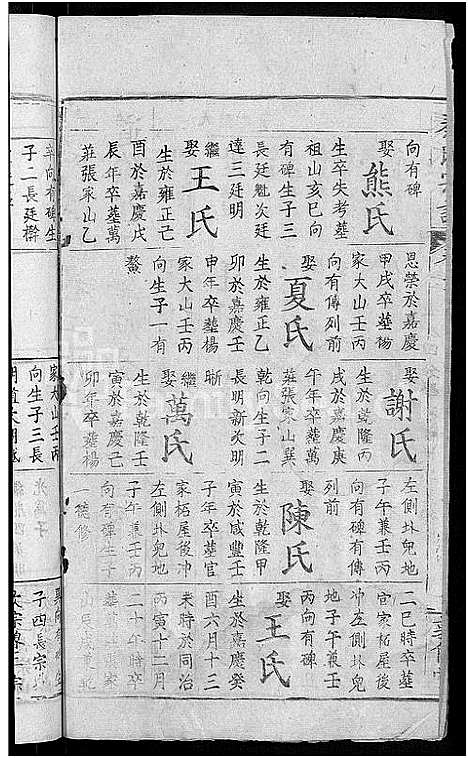 向有碑
娶熊氏
生卒失考墓
祖山亥巳向
有碑生子三
長廷魁次廷
達三廷明
繼娶王氏
生於雍正己
酉於嘉慶戊
辰年卒墓萬
莊張家山乙
恩榮於嘉慶
甲戌卒墓楊
家大山壬丙
向有傳列前
娶夏氏
生於雍正乙
卯於嘉慶壬
申年卒墓楊
家大山壬丙
向生子一有
鰲
娶謝氏
生於乾隆丙
戌於嘉慶庚
午年卒墓萬
莊張家山巽
乾向生子二
長明新次明
晰
繼娶萬氏
生於乾隆壬
寅於嘉慶己
卯年卒墓楊
左側坔兒地
子午兼壬丙
向有碑有傳
列前
娶陳氏
生於乾隆甲
寅於咸豐壬
子年卒墓官
家柘屋後冲
左側坔兒地
子午兼壬丙
向有碑生子
一德修
二巳時卒墓
官家柘屋後
冲左側坔兒
地子午兼壬
丙向有碑
娶王氏
生於嘉慶癸
酉六月十三
未時於同治
丙寅十二月
二十午時卒
辛向有碑生
子二長廷樹
家大山壬丙
向生子三長
子四長宗